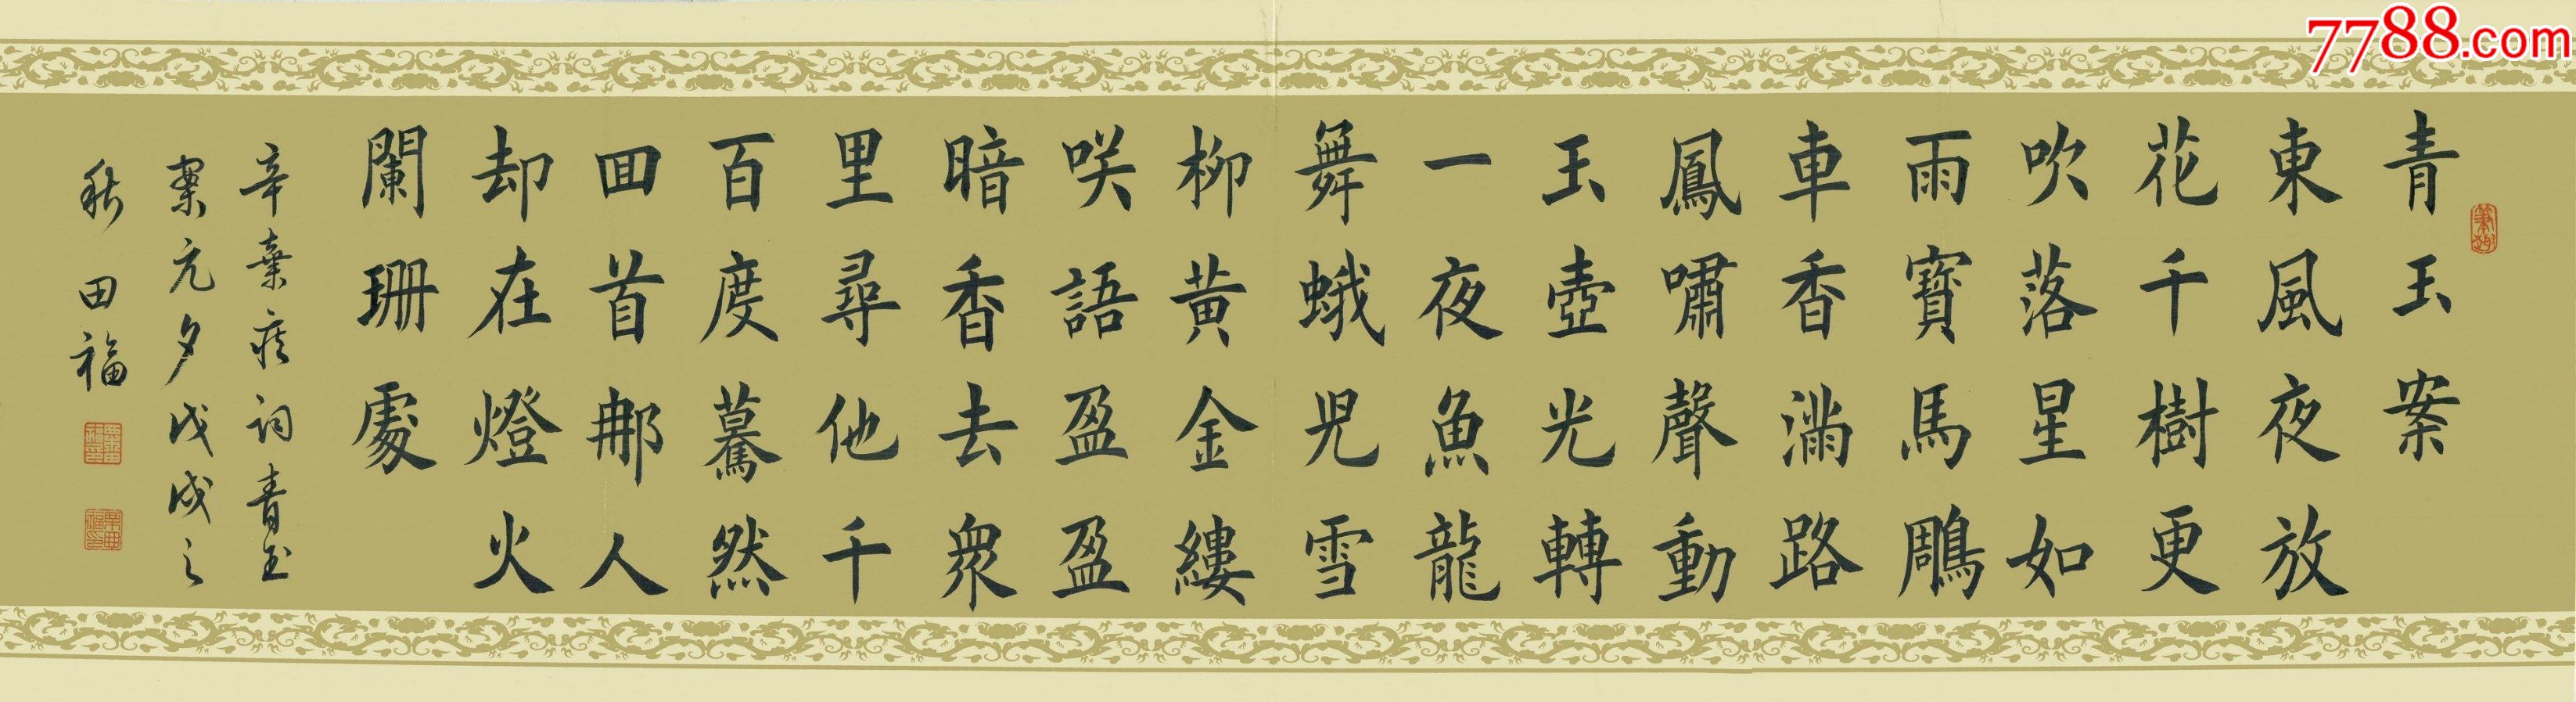 7788.com
青玉案
東風夜放
花千樹更
吹落星如
雨寶馬鵰
車香滿路
鳳嘯聲動
玉壺光轉
一夜魚龍
舞蛾兒雪
柳黃金縷
咲語盈盈
暗香去衆
里尋他千
百度驀然
囬首那人
却在燈火
闌珊處
辛棄疾詞青玉
案元夕戊戌之
秋 田福